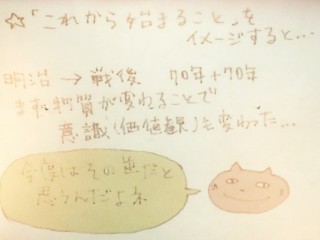 ☆「これから始まること」を
イメージすると…
明治 → 戦後 70年+70年
まず物質が変わることで
意識(価値観)も変わった…
今度はその逆だと
思うんだよネ